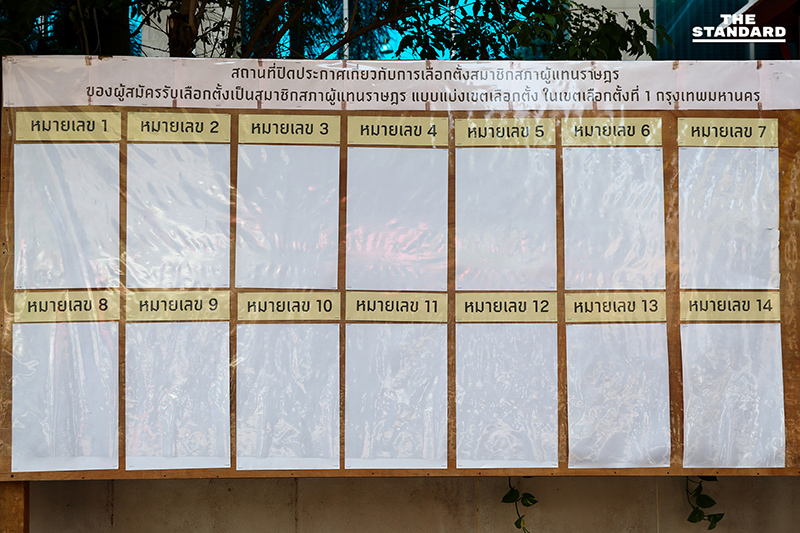 THE
STANDARD
สถานที่ปิดประกาศเกี่ยวกับการเลือกตั้งสมาชิกสภาผู้แทนราษฎร
ของผู้สมัครรับเลือกตั้งเป็นสมาชิกสภาผู้แทนราษฎร แบบแบ่งเขตเลือกตั้ง ในเขตเลือกตั้งที่ 1 กรุงเทพมหานคร
หมายเลข 1
หมายเลข 2
หมายเลข 3
หมายเลข 4
หมายเลข 5
หมายเลข 6
หมายเลข 7
หมายเลข 8
หมายเลข 9
หมายเลข 10
หมายเลข 11
หมายเลข 12
หมายเลข 13
หมายเลข 14